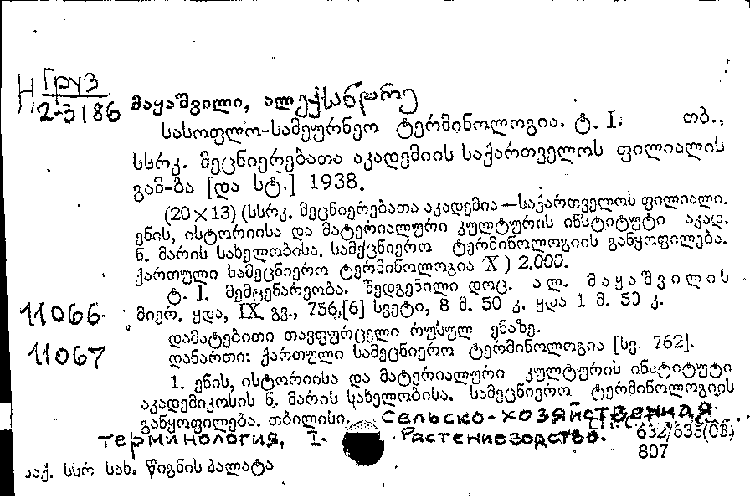 Н Груз
2-3186
მაყაშვილი, ალექსანდრე
სასოფლო-სამეურნეო ტერმინოლოგია. ტ. I. თბ.,
სსრკ. მეცნიერებათა აკადემიის საქართველოს ფილიალის
გამ-ბა [და სტ.] 1938.
(20×13) (სსრკ. მეცნიერებათა აკადემია — საქართველოს ფილიალი.
ენის, ისტორიისა და მატერიალური კულტურის ინსტიტუტი აკად.
ნ. მარის სახელობისა. სამეცნიერო ტერმინოლოგიის განყოფილება.
ქართული სამეცნიერო ტერმინოლოგია X) 2.000.
ტ. I. მემცენარეობა. შედგენილი დოც. ალ. მაყაშვილის
11066 მიერ. ყდა, IX გვ., 756,[6] სვეტი, 8 მ. 50 კ. ყდა 1 მ. 50 კ.
დამატებითი თავფურცელი რუსულ ენაზე.
11067 დანართი: ქართული სამეცნიერო ტერმინოლოგია [სვ. 762].
1. ენის, ისტორიისა და მატერიალური კულტურის ინსტიტუტი
აკადემიკოსის ნ. მარის სახელობისა. სამეცნიერო ტერმინოლოგიის
განყოფილება. თბილისი. Сельско-хозяйственная
терминология, I. Растениеводство. 632/635(03)
807
საქ. სსრ სახ. წიგნის პალატა